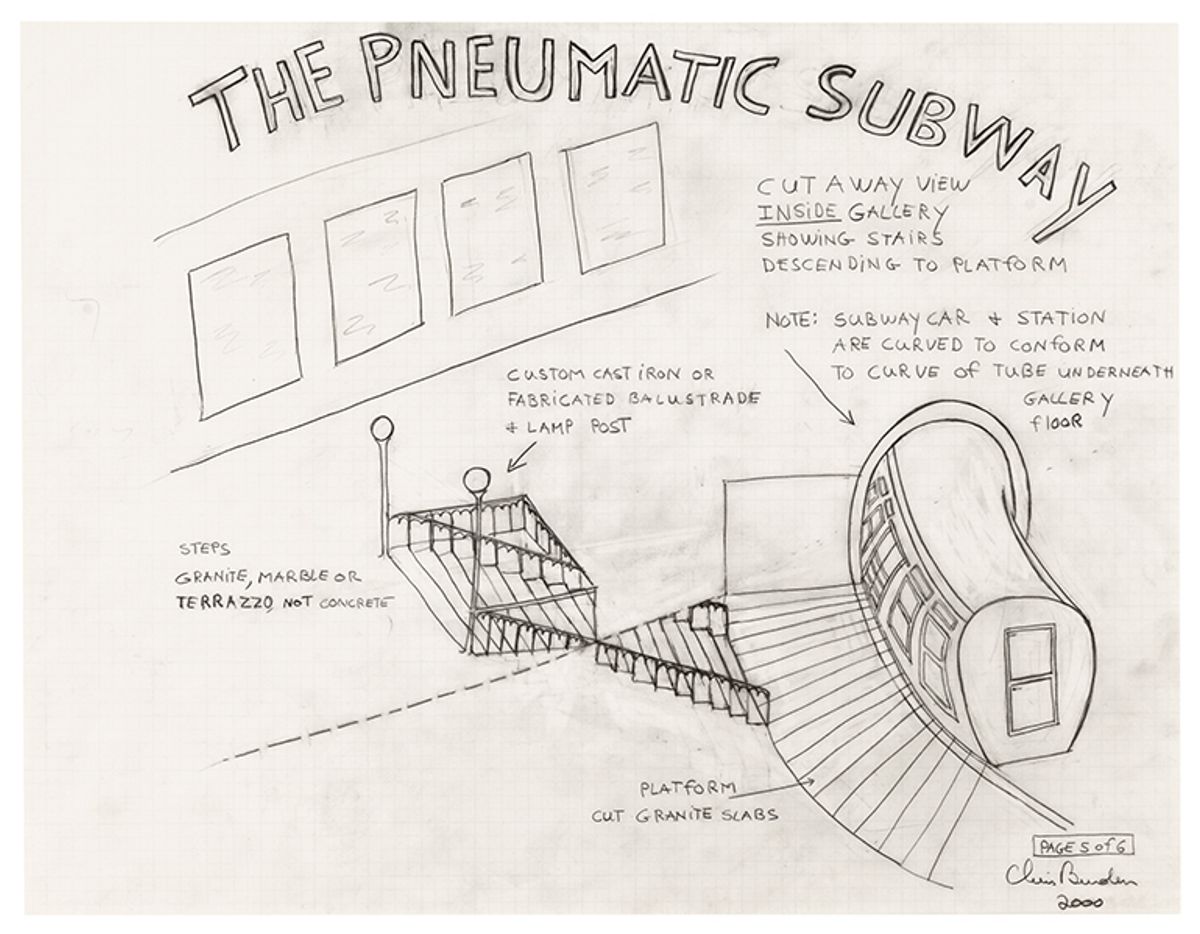 THE PNEUMATIC SUBWAY
CUT AWAY VIEW
INSIDE GALLERY
SHOWING STAIRS
DESCENDING TO PLATFORM
NOTE: SUBWAY CAR & STATION
ARE CURVED TO CONFORM
TO CURVE OF TUBE UNDERNEATH
GALLERY
FLOOR
CUSTOM CAST IRON OR
FABRICATED BALUSTRADE
& LAMP POST
STEPS
GRANITE, MARBLE OR
TERRAZZO NOT CONCRETE
PLATFORM
CUT GRANITE SLABS
PAGE 5 OF 6
Chris Burden
2000